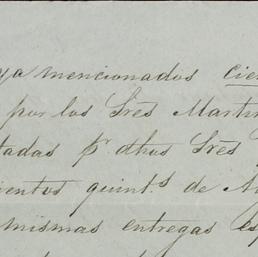 ya mencionados cien
por los Sres Martin
tadas pr. dhos Sres
ientos quint.s de A
mismas entregas esp